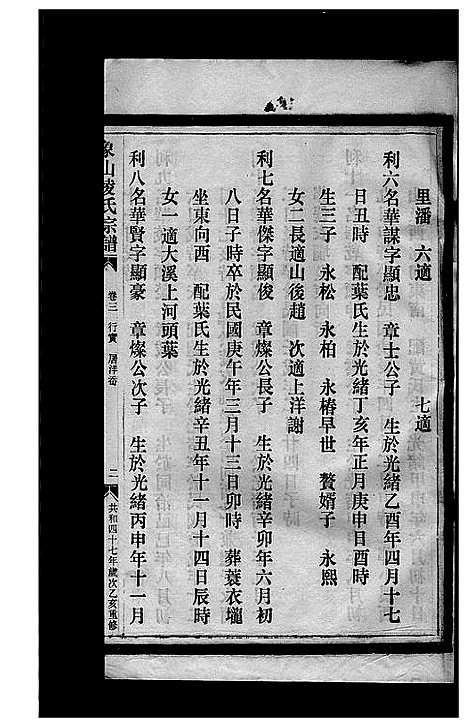 里潘　六適　　七適
利六名華謀字顯忠　章士公子　生於光緒乙酉年四月十七
日丑時　配葉氏生於光緒丁亥年正月庚申日酉時
生三子　永松　永柏　永椿早世　贅婿子　永熙
女二長適山後趙　次適上洋謝
利七名華傑字顯俊　章燦公長子　生於光緒辛卯年六月初
八日子時卒於民國庚午年三月十三日卯時　葬蓑衣壠
坐東向西　配葉氏生於光緒辛丑年十一月十四日辰時
女一適大溪上河頭葉
利八名華賢字顯豪　章燦公次子　生於光緒丙申年十一月
象山陵氏宗譜　卷三　行實　居洋岙　二　共和四十七年歲次乙亥重修